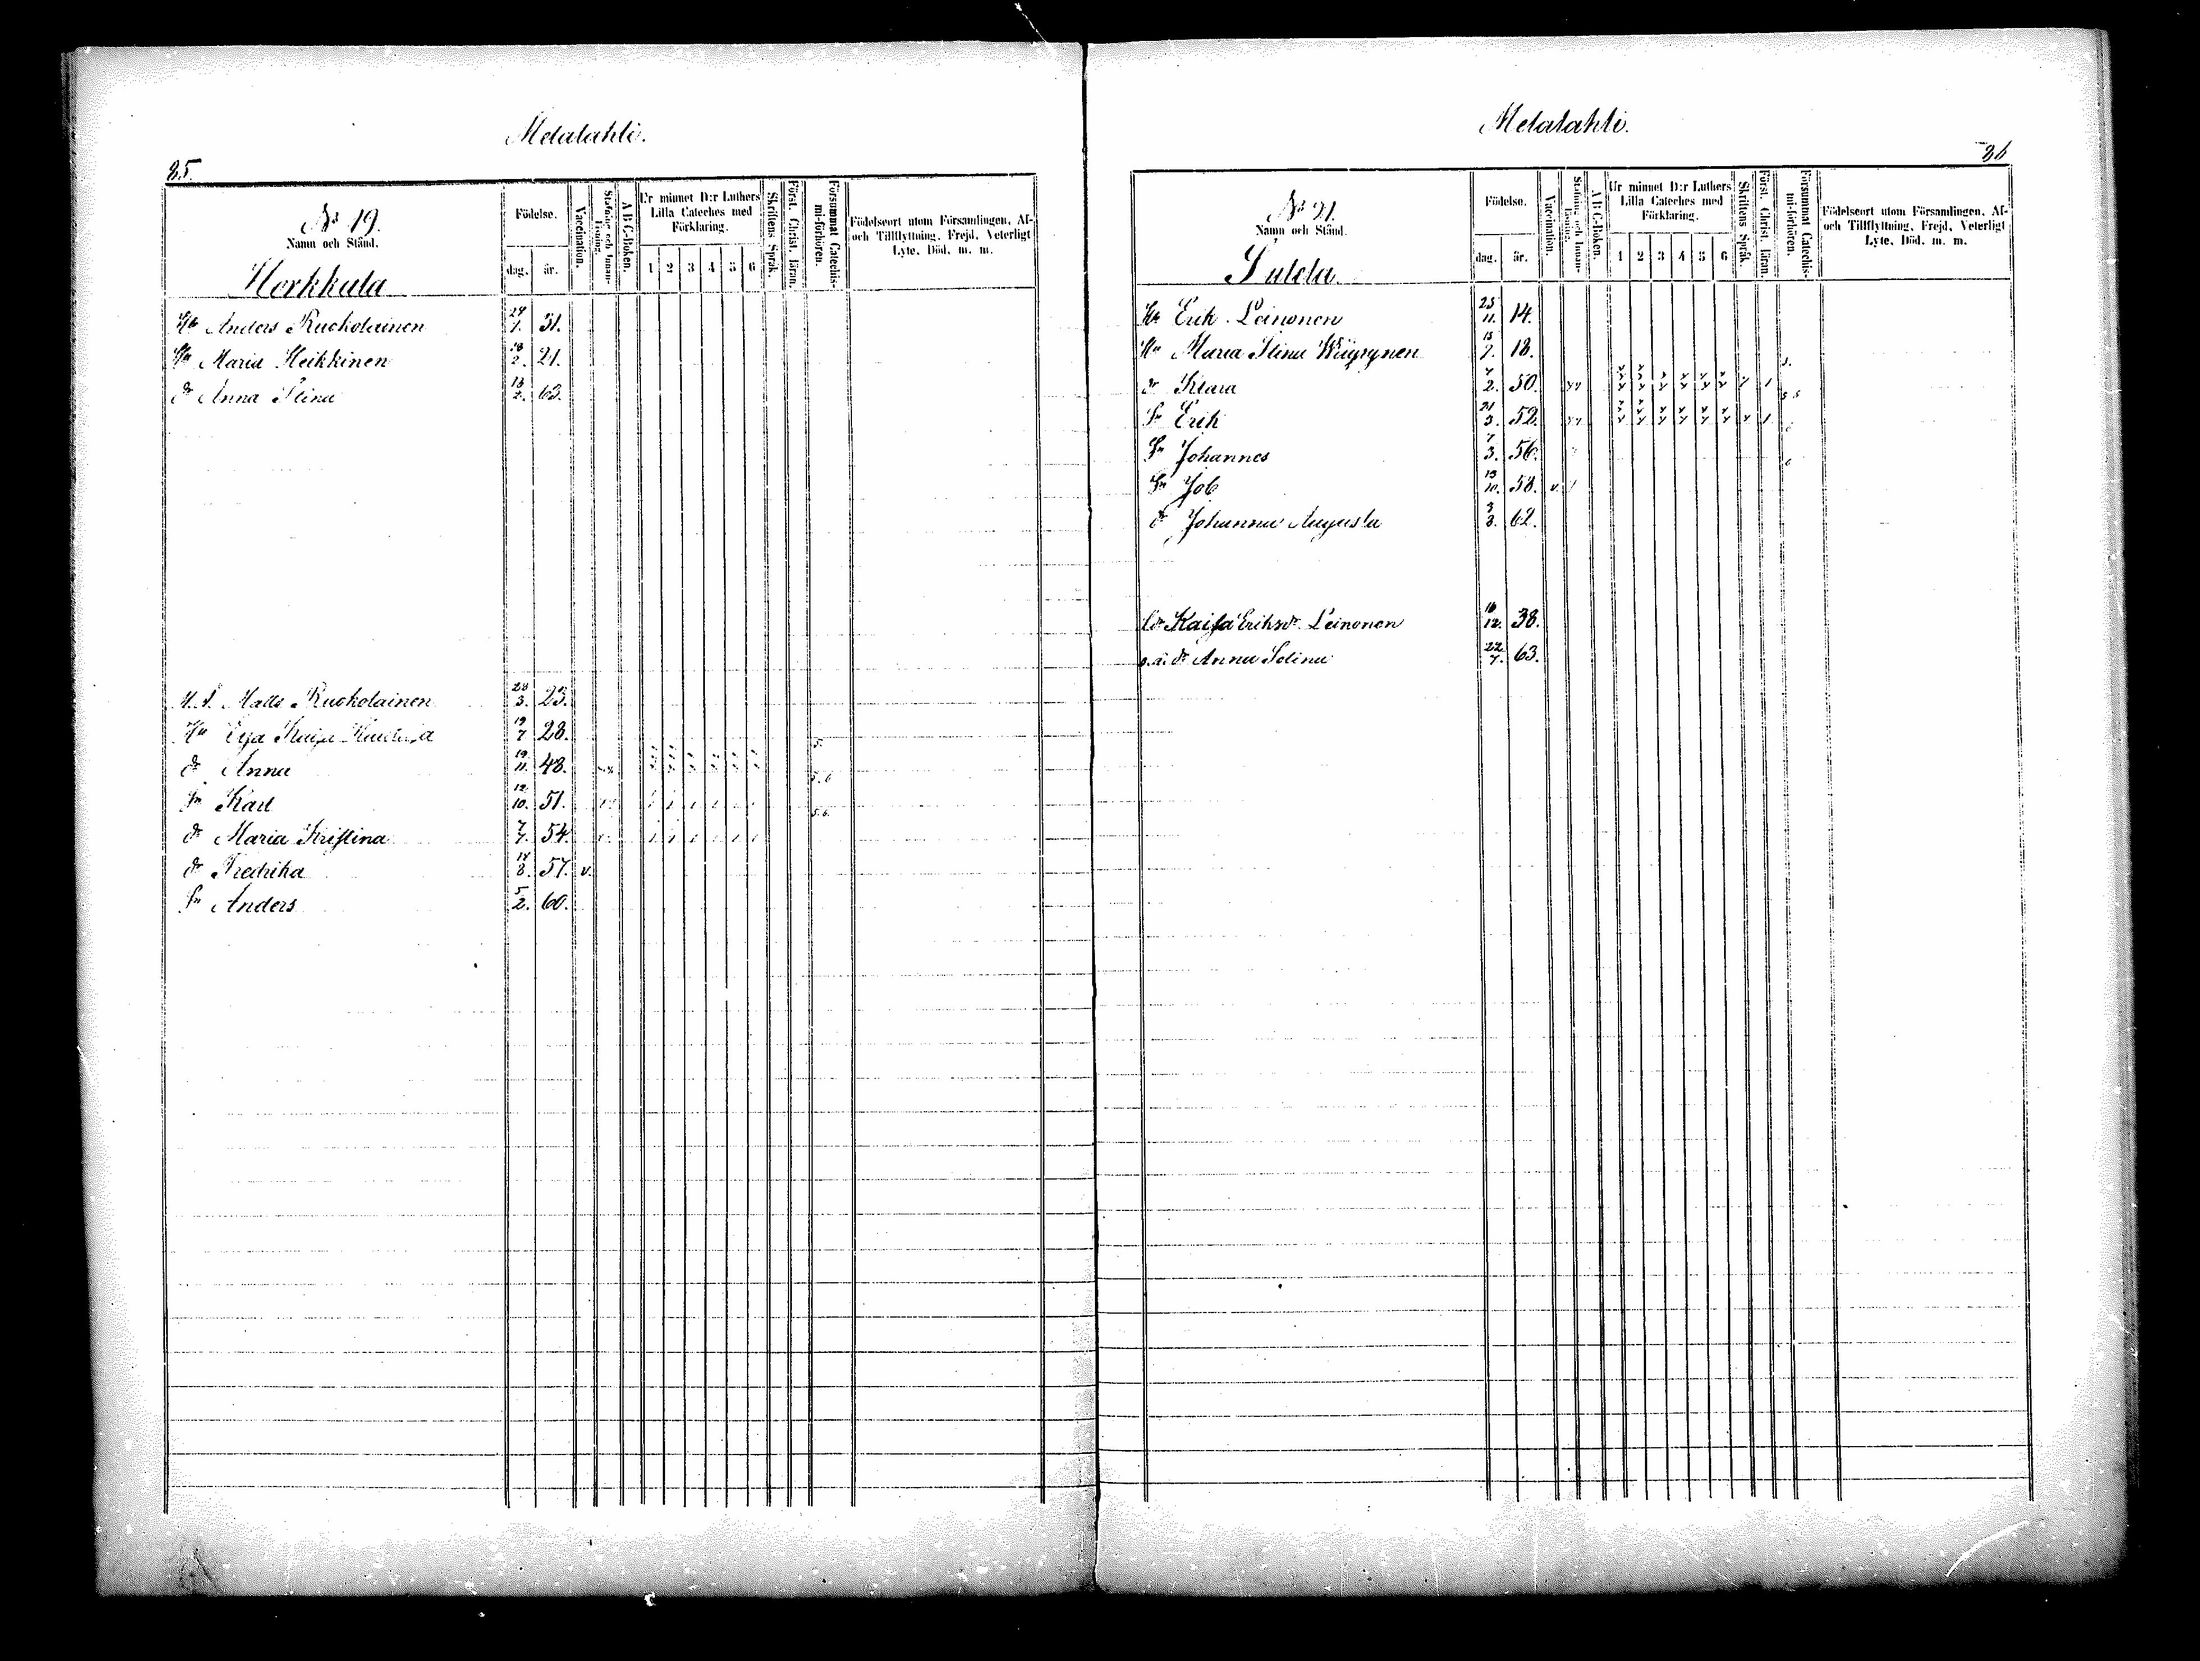 Metalahti.
85.
№ 19.
Namn och Stånd.
Herkkula
Födelse.
dag. år.
Vaccination.
Stafning och Innan-läsning.
A-B-C-Boken.
Ur minnet D:r Luthers
Lilla Cateches med
Förklaring.
1 2 3 4 5 6
Skriftens Språk.
Först. Christ. läran.
Försummat Catechis-mi-förhören.
Födelseort utom Församlingen, Af-
och Tillflyttning, Frejd, Veterligt
Lyte, Död. m. m.
Anders Ruokolainen 29/7. 31.
Hu Maria Heikkinen 18/2. 21.
dr Anna Stina 13/2. 63.
Matts Ruokolainen 28/3. 23.
Hu Kaisa 19/7 28.
dr Anna 19/11. 48. 5.
Sn Karl 12/10. 51. 5. 6
dr Maria Kristina 7/7. 54. 5. 6.
dr Fredrika 14/8. 57. v.
Sn Anders 5/2. 60.
Metalahti.
86
№ 21.
Namn och Stånd.
Födelse.
dag. år.
Vaccination.
Stafning och Innan-läsning.
A-B-C-Boken.
Ur minnet D:r Luthers
Lilla Cateches med
Förklaring.
1 2 3 4 5 6
Skriftens Språk.
Först. Christ. läran.
Försummat Catechis-mi-förhören.
Födelseort utom Församlingen, Af-
och Tillflyttning, Frejd, Veterligt
Lyte, Död. m. m.
Erik Leinonen 25/11. 14.
Hu Maria Stina 15/7. 18.
dr Klara 2. 50. 5.
Sn Erik 21/3. 52. 5 5
Sn Johannes 7/3. 56.
Sn Job 13/10. 58. v.
dr Johanna Augusta 3/3. 62.
Kaisa Eriksdr Leinonen 16/12. 38.
o.ä. dr Anna Selina 22/7. 63.